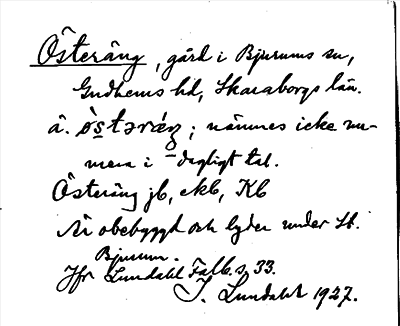 Österäng, gård i Bjurums sn,
Gudhems hd, Skaraborgs län.
å. òstəráŋ; nämnes icke nu-
mera i dagligt tal.
Österäng jb, ekb, Kb
Är obebyggd och lyder under St.
Bjurum.
Jfr Lundahl Falb. s. 33.
I. Lundahl 1927.